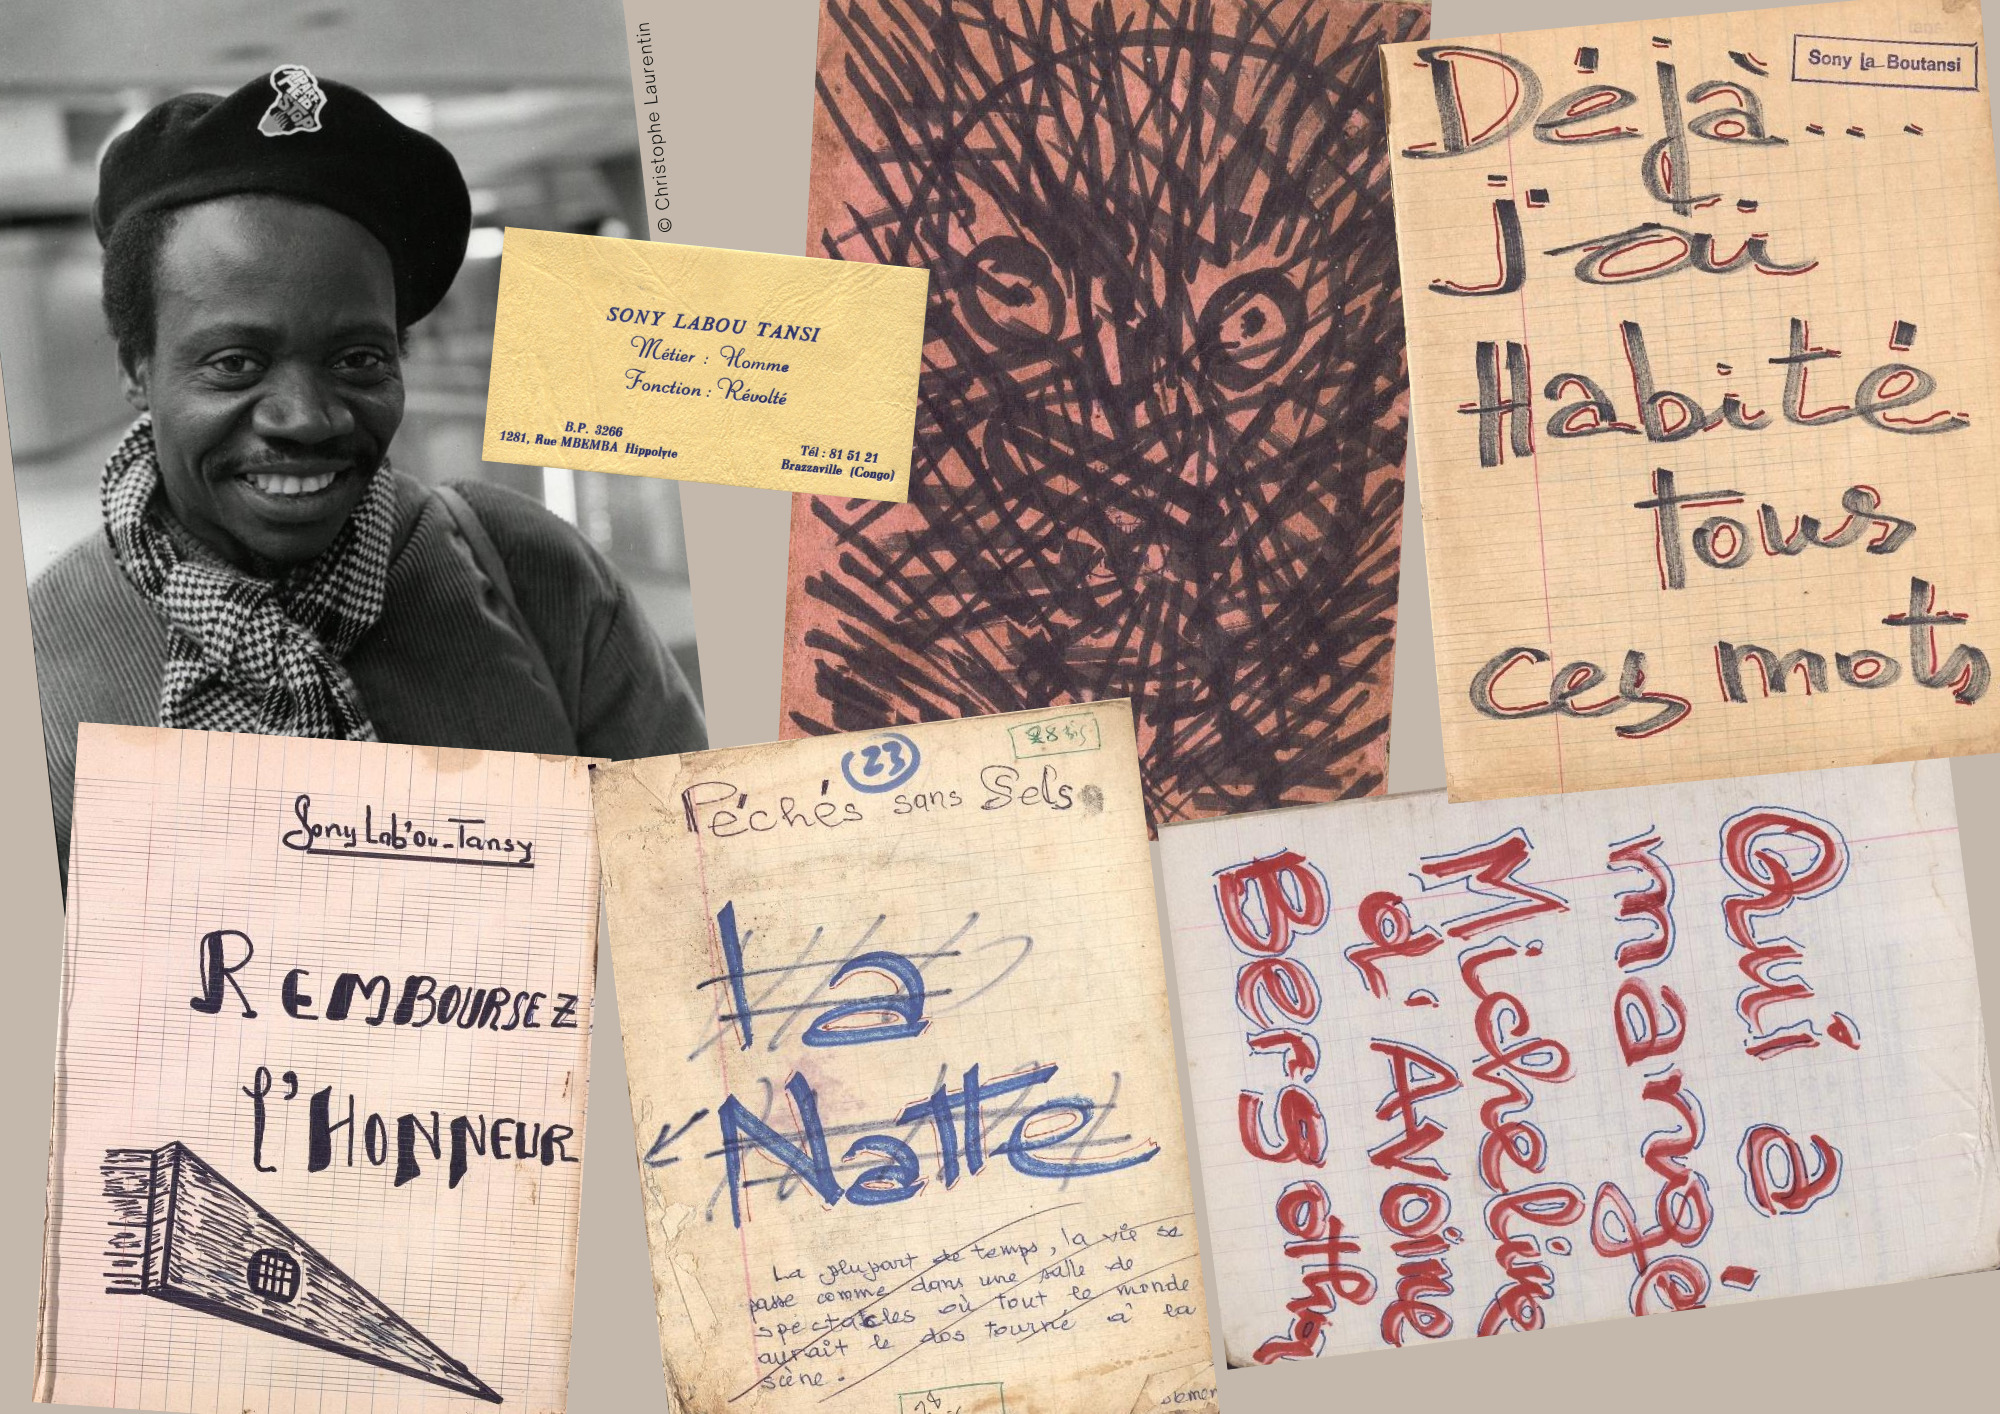 APART
HEID
STOP
© Christophe Laurentin
SONY LABOU TANSI
Métier : Homme
Fonction : Révolté
B.P. 3266
1281, Rue MBEMBA Hippolyte
Tél : 81 51 21
Brazzaville (Congo)
Sony La Boutansi
Déjà...
j'ai
Habité
tous
ces mots
Sony Lab'ou-Tansy
REMBOURSEZ
l'HONNEUR
23
28 bis
Péchés sans Sels
La
Natte
La plupart de temps, la vie se
passe comme dans une salle de
spectacles où tout le monde
aurait le dos tourné à la
scène.
Qui a
mangé
Micheline
d'Avoine
Bergotha